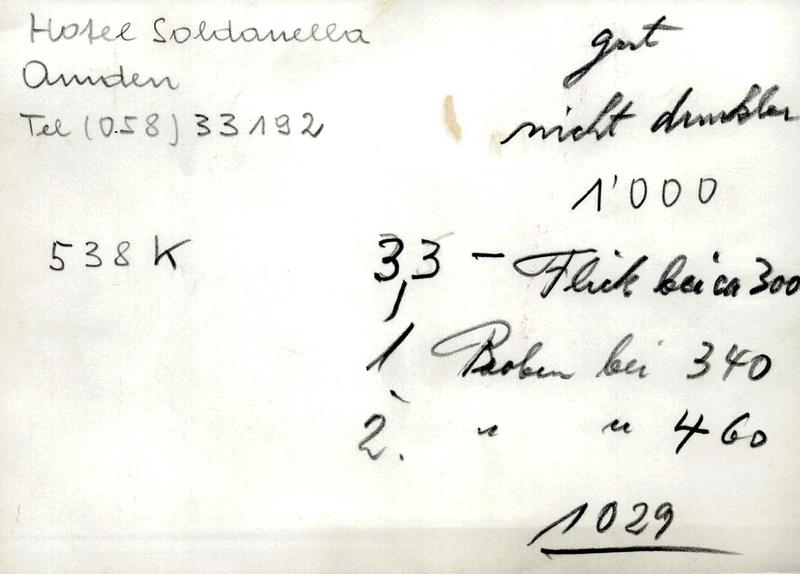 Hotel Soldanella
Amden
Tel (058) 33192
gut
nicht dunkler
1'000
538 K
3,3 – Flick bei ca 300
1 Proben bei 340
2. " " 460
1029